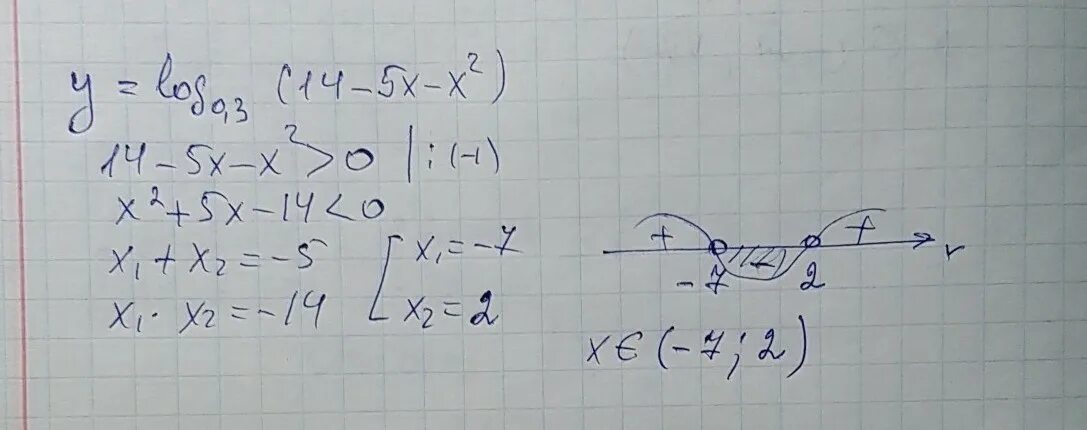 y = log₀,₃ (14 - 5x - x²)
14 - 5x - x² > 0 | : (-1)
x² + 5x - 14 < 0
x₁ + x₂ = -5
x₁ · x₂ = -14
[ x₁ = -7
x₂ = 2
+ - + x
-7 2
x ∈ (-7; 2)